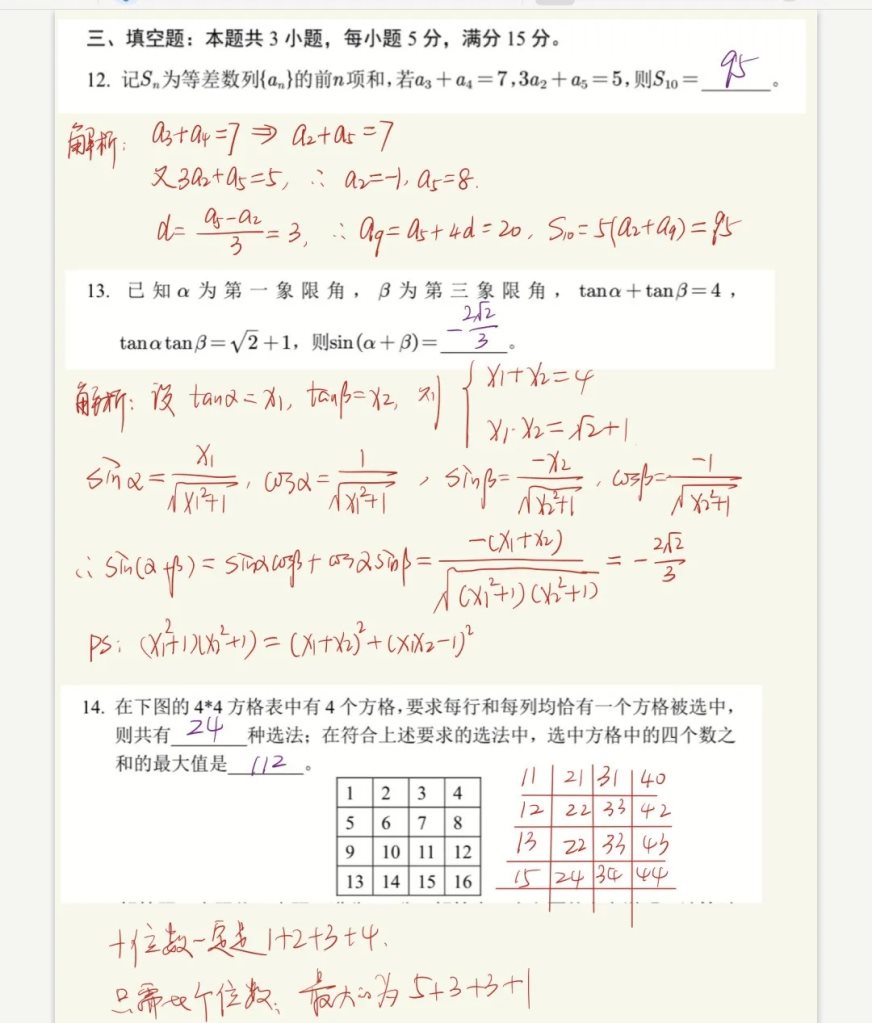 三、填空题：本题共 3 小题，每小题 5 分，满分 15 分。
12. 记Sₙ为等差数列{aₙ}的前n项和，若a₃+a₄=7,3a₂+a₅=5，则S₁₀=95。
解析：a₃+a₄=7 ⇒ a₂+a₅=7
又3a₂+a₅=5, ∴ a₂=-1, a₅=8.
d= (a₅-a₂)/3 = 3, ∴ a₉=a₅+4d=20, S₁₀=5(a₂+a₉)=95
13. 已知α为第一象限角，β为第三象限角，tanα+tanβ=4，
tanαtanβ=√2+1，则sin(α+β)=-2√2/3。
解析：设 tanα=x₁, tanβ=x₂, 则 { x₁+x₂=4
x₁·x₂=√2+1
sinα= x₁/√(x₁²+1), cosα= 1/√(x₁²+1), sinβ= -x₂/√(x₂²+1), cosβ= -1/√(x₂²+1)
∴ sin(α+β)=sinαcosβ+cosαsinβ= -(x₁+x₂)/√((x₁²+1)(x₂²+1)) = -2√2/3
PS: (x₁²+1)(x₂²+1)=(x₁+x₂)²+(x₁x₂-1)²
14. 在下图的 4*4 方格表中有 4 个方格，要求每行和每列均恰有一个方格被选中，
则共有24种选法；在符合上述要求的选法中，选中方格中的四个数之
和的最大值是112。
1 2 3 4
5 6 7 8
9 10 11 12
13 14 15 16
11 21 31 40
12 22 33 42
13 22 33 43
15 24 34 44
十位数一定是1+2+3+4.
只需 个位数：最大的为 5+3+3+1